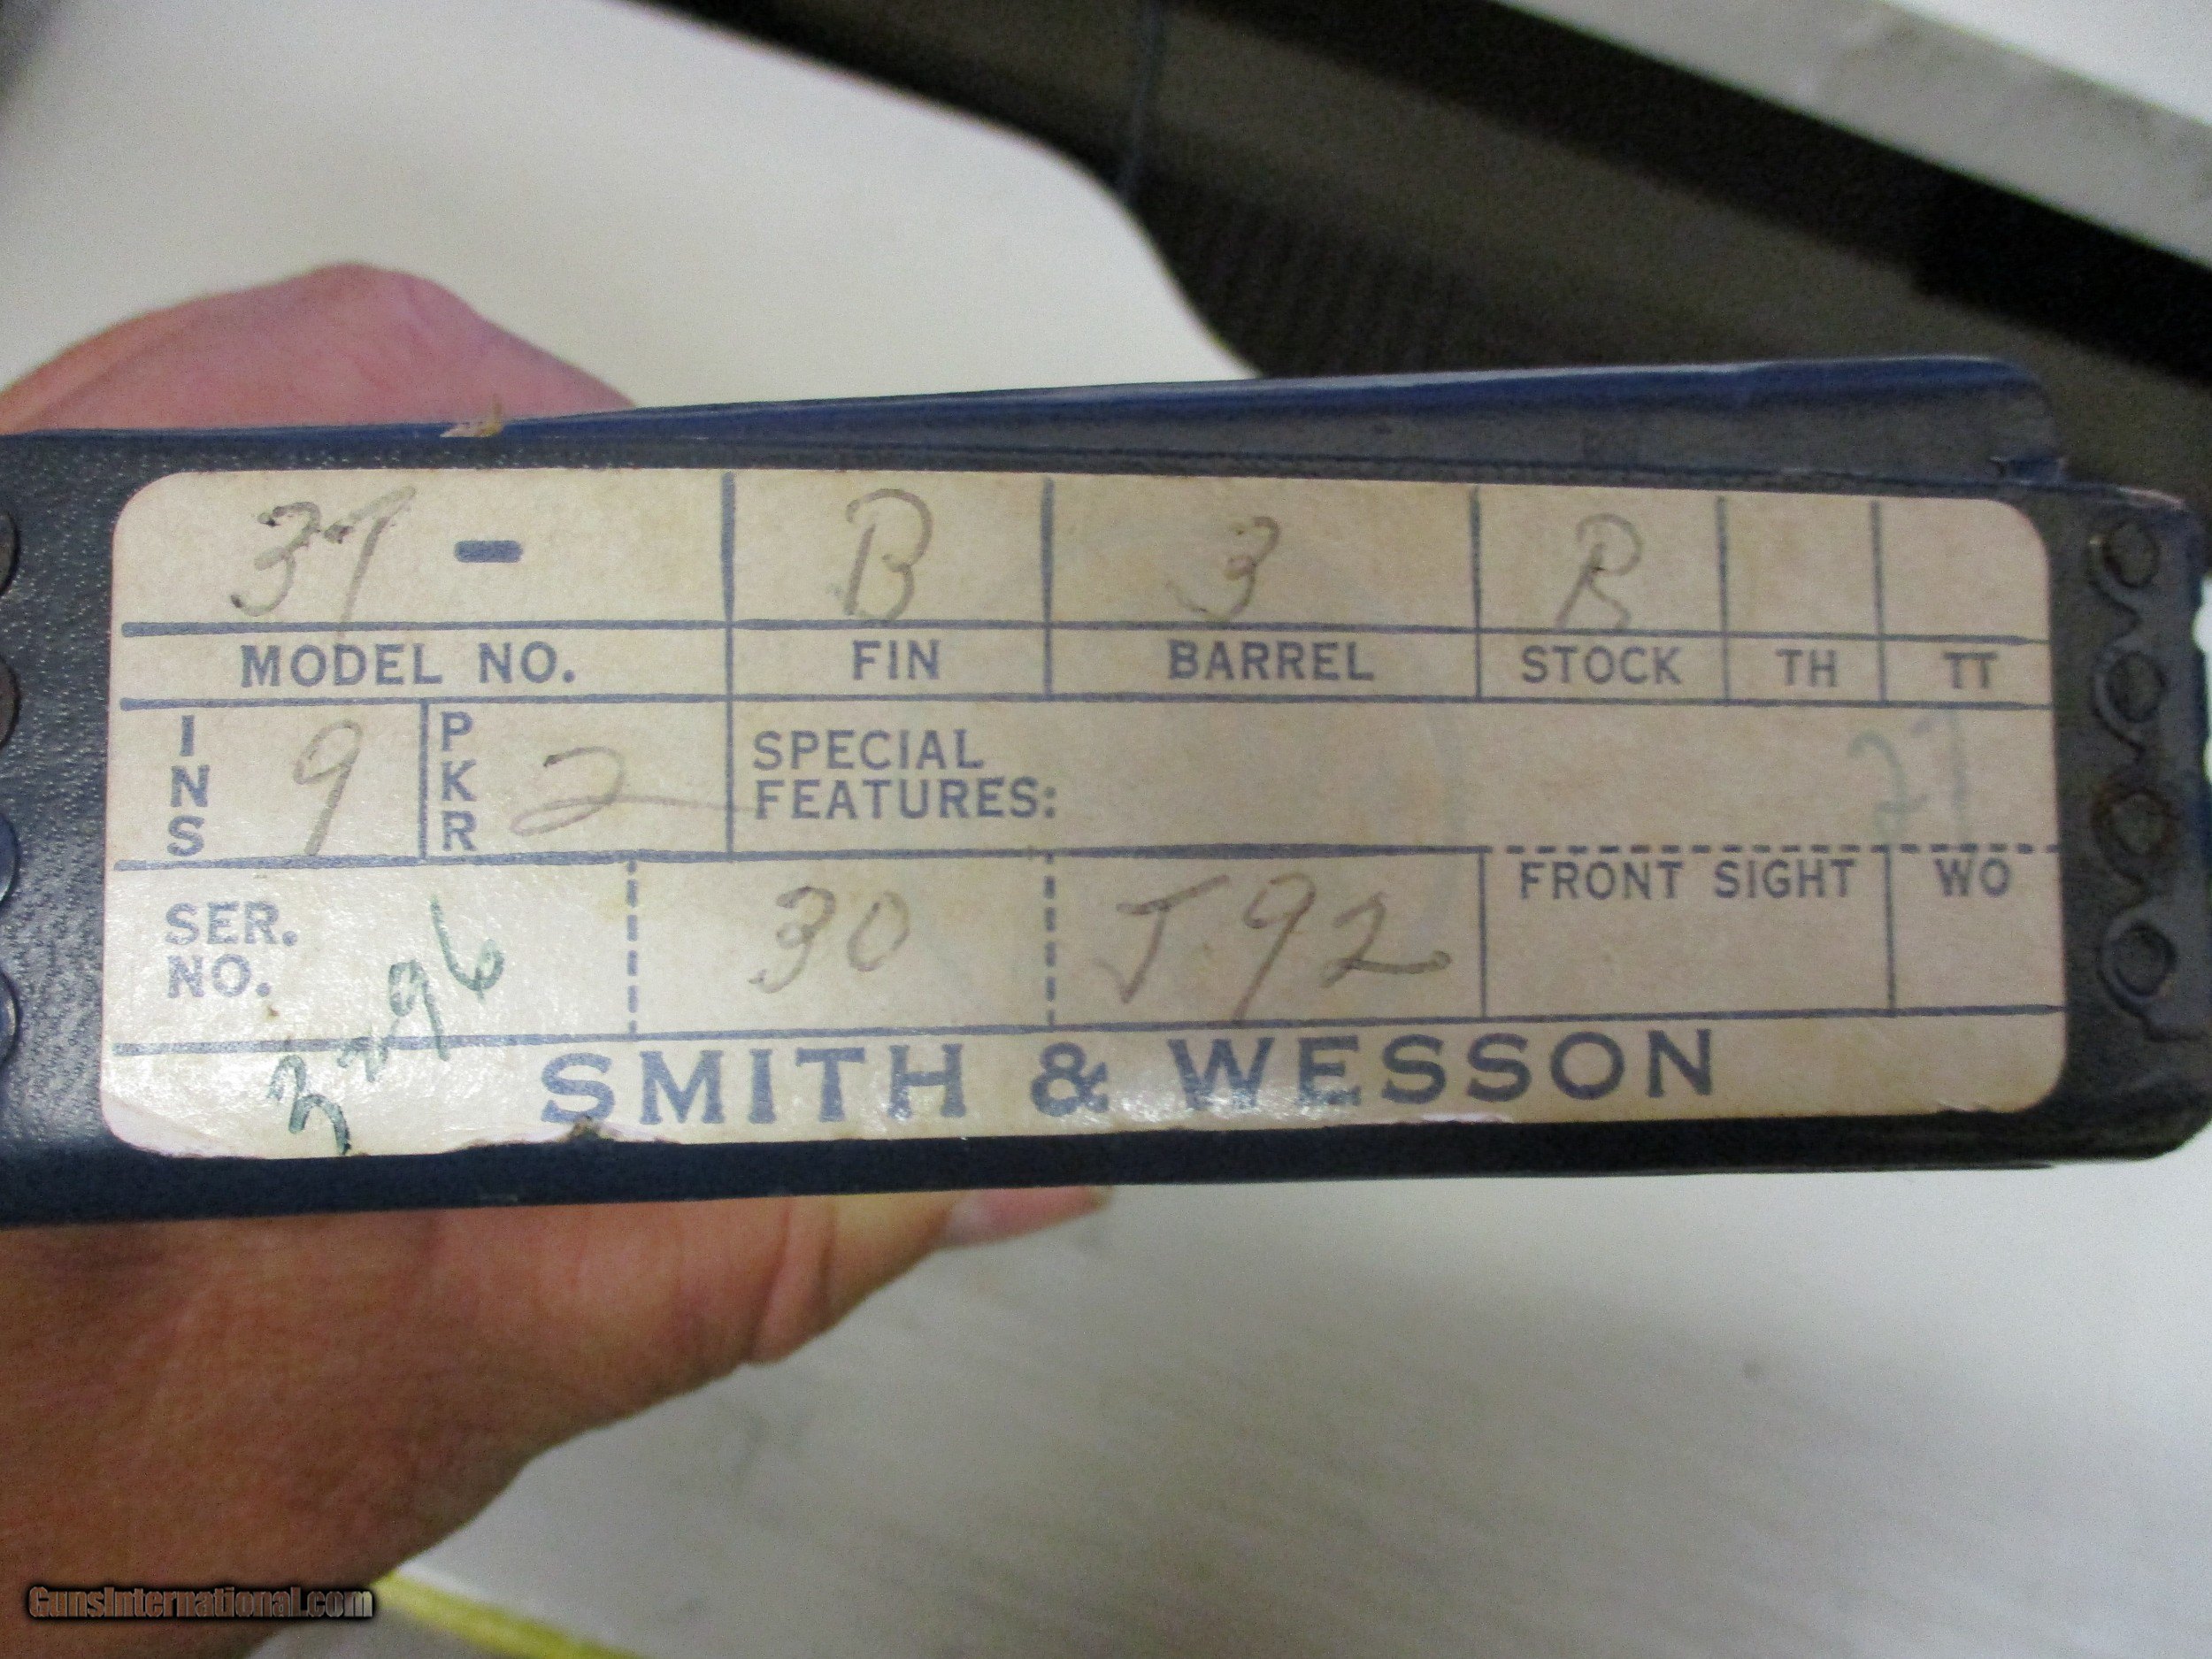 37 - B 3 R
MODEL NO. FIN BARREL STOCK TH TT
INS 9 PKR 2 SPECIAL FEATURES: 27
SER. NO. 30 J 92 FRONT SIGHT WO
3296
SMITH & WESSON
GunsInternational.com